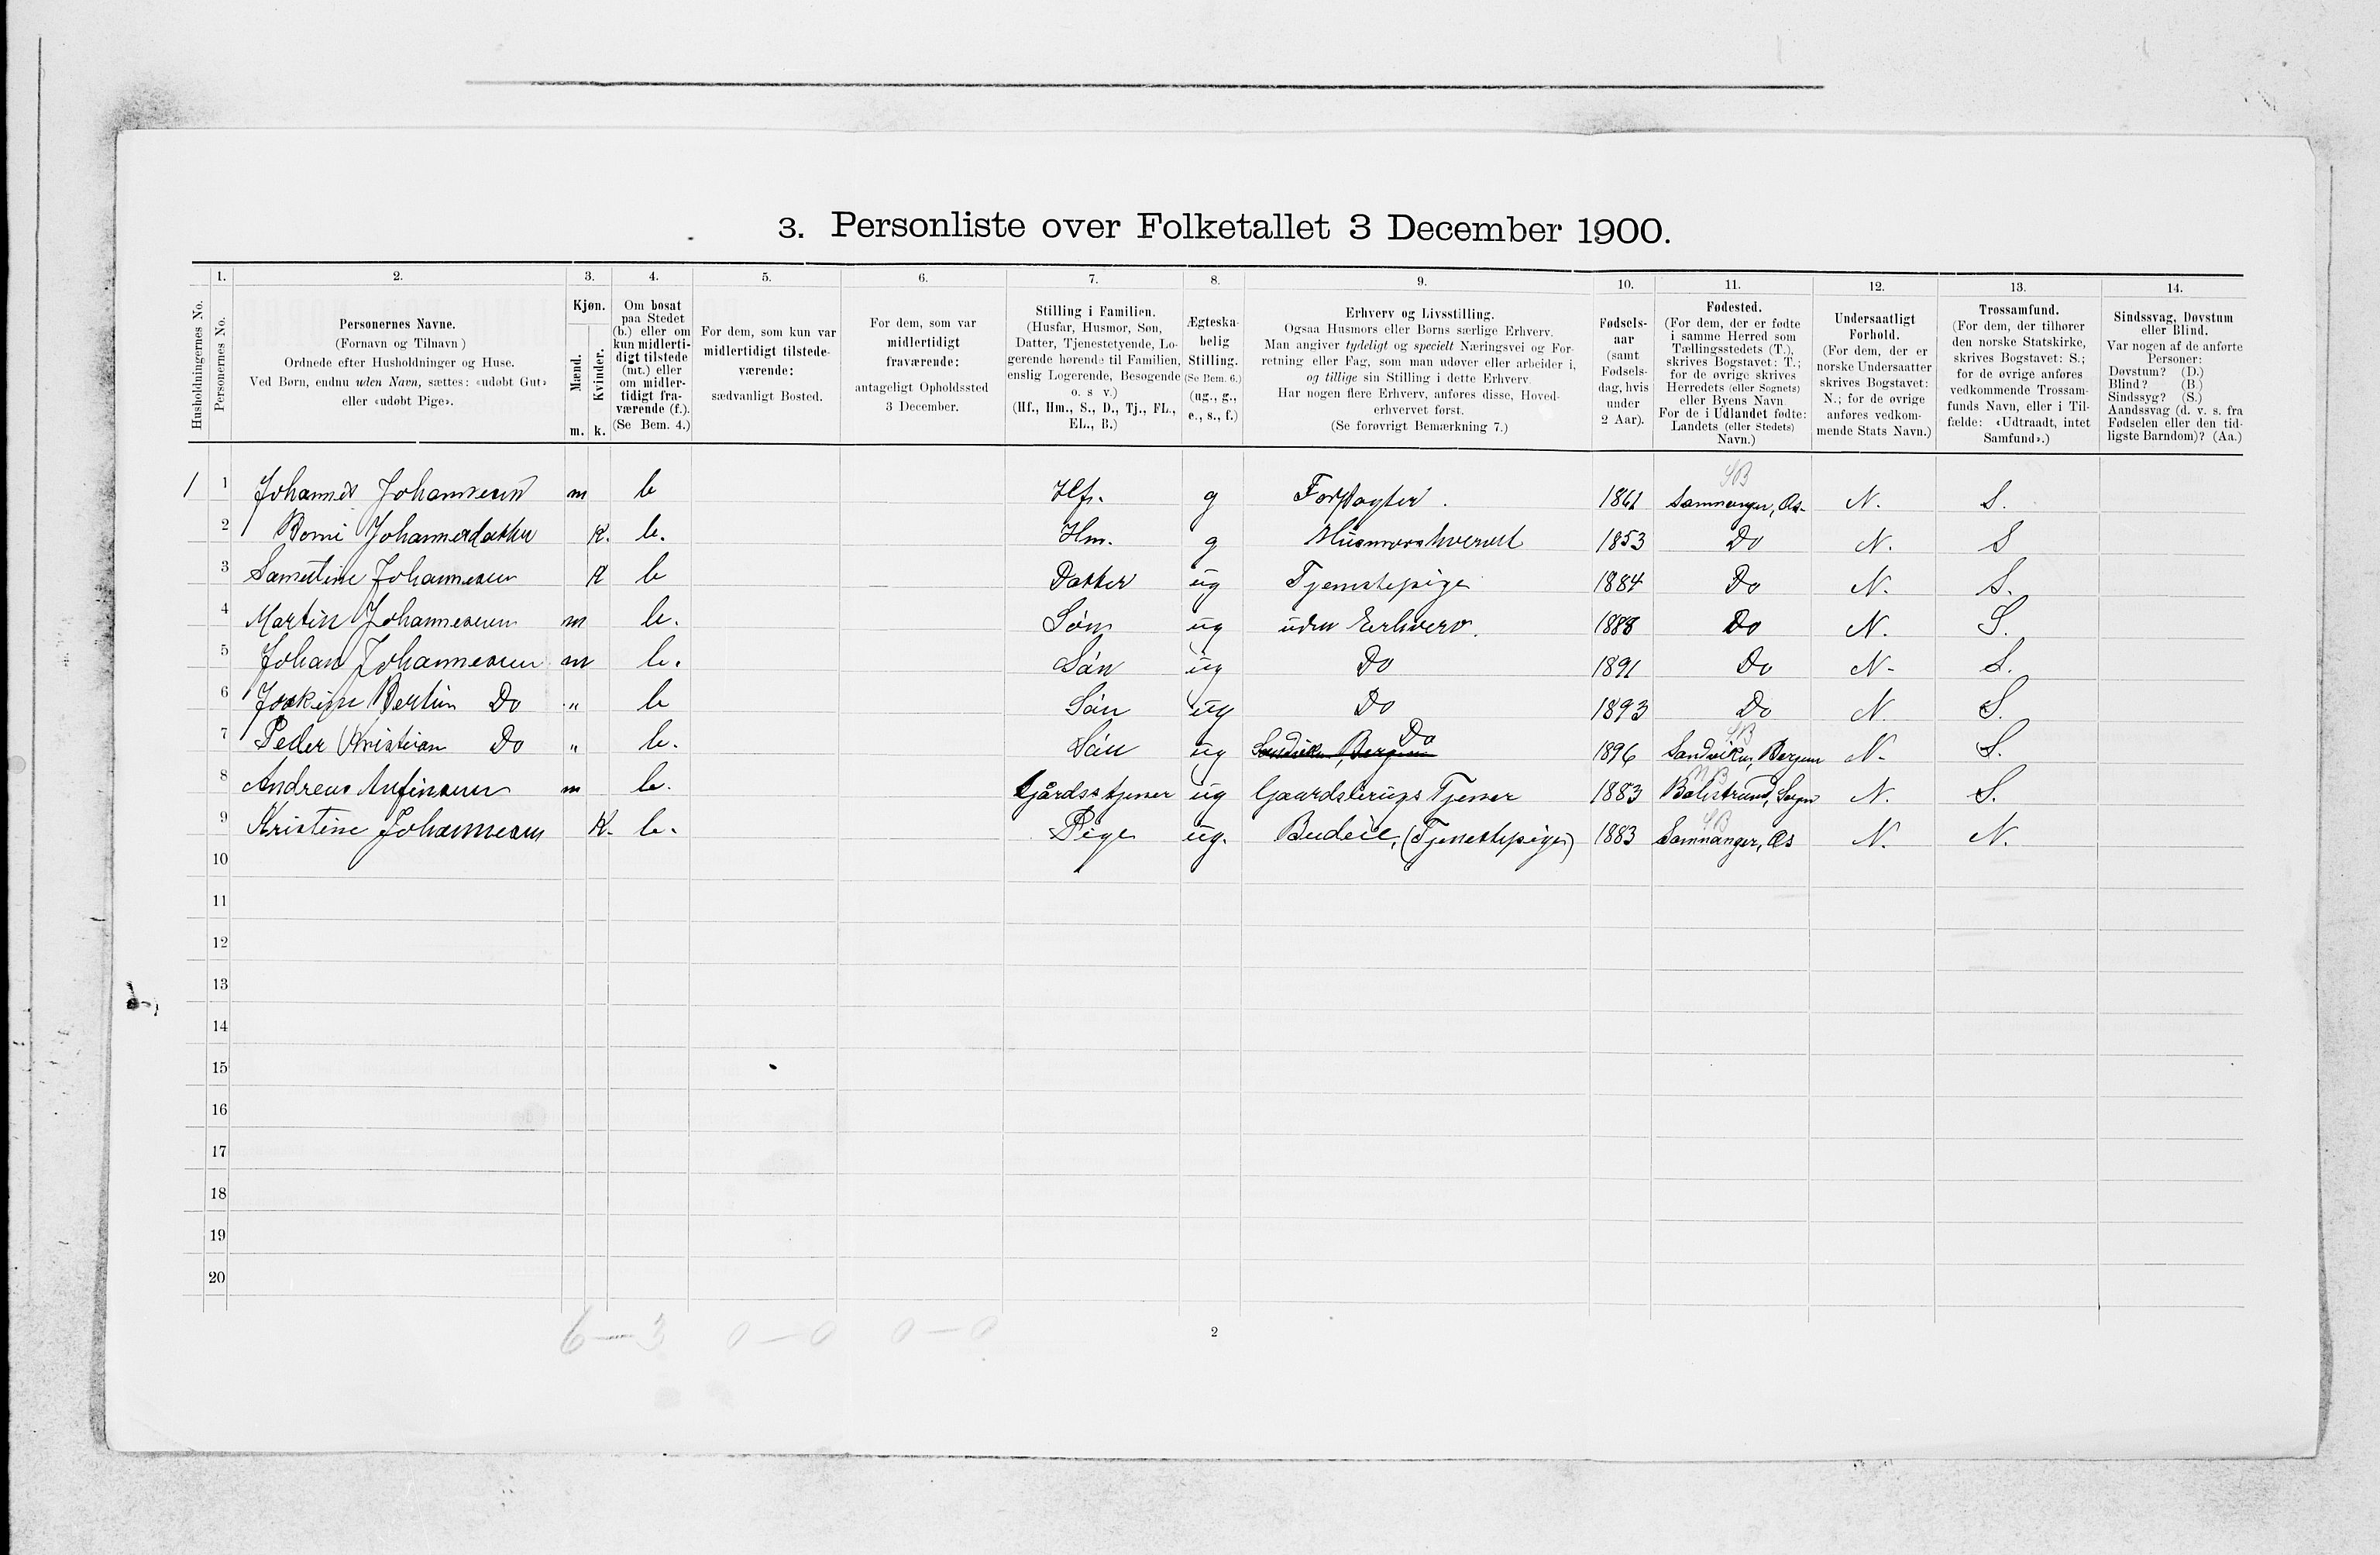 3. Personliste over Folketallet 3 December 1900.
1. 2. 3. 4. 5. 6. 7. 8. 9. 10. 11. 12. 13. 14.
Husholdningernes No.
Personernes No.
Personernes Navne.
(Fornavn og Tilnavn)
Ordnede efter Husholdninger og Huse.
Ved Børn, endnu uden Navn, sættes: «udøbt Gut»
eller «udøbt Pige».
Kjøn.
Mænd.
Kvinder.
m. k.
Om bosat
paa Stedet
(b.) eller om
kun midlerti-
digt tilstede
(mt.) eller
om midler-
tidigt fra-
værende (f.).
(Se Bem. 4.)
For dem, som kun var
midlertidigt tilstede-
værende:
sædvanligt Bosted.
For dem, som var
midlertidigt
fraværende:
antageligt Opholdssted
3 December.
Stilling i Familien.
(Husfar, Husmor, Søn,
Datter, Tjenestetyende, Lo-
gerende hørende til Familien,
enslig Logerende, Besøgende
o. s v.)
(Hf., Hm., S., D., Tj., FL.,
EL., B.)
Ægteska-
belig
Stilling.
(Se Bem. 6.)
(ug., g.,
e., s., f.)
Erhverv og Livsstilling.
Ogsaa Husmors eller Børns særlige Erhverv.
Man angiver tydeligt og specielt Næringsvei og For-
retning eller Fag, som man udøver eller arbeider i,
og tillige sin Stilling i dette Erhverv.
Har nogen flere Erhverv, anføres disse, Hoved-
erhvervet først.
(Se forøvrigt Bemærkning 7.)
Fødsels-
aar
(samt
Fødsels-
dag, hvis
under
2 Aar).
Fødested.
(For dem, der er fødte
i samme Herred som
Tællingsstedets (T.),
skrives Bogstavet: T.;
for de øvrige skrives
Herredets (eller Sognets)
eller Byens Navn.
For de i Udlandet fødte:
Landets (eller Stedets)
Navn.)
Undersaatligt
Forhold.
(For dem, der er
norske Undersaatter
skrives Bogstavet:
N.; for de øvrige
anføres vedkom-
mende Stats Navn.)
Trossamfund.
(For dem, der tilhører
den norske Statskirke,
skrives Bogstavet: S.;
for de øvrige anføres
vedkommende Trossam-
funds Navn, eller i Til-
fælde: «Udtraadt, intet
Samfund».)
Sindssvag, Døvstum
eller Blind.
Var nogen af de anførte
Personer:
Døvstum? (D.)
Blind? (B.)
Sindssyg? (S.)
Aandssvag (d. v. s. fra
Fødselen eller den tid-
ligste Barndom)? (Aa.)
SB
1 1 Johannes Johannesen m b Hf. g Forpagter. 1861 Samnanger, Os. N. S.
2 Johannesdatter K. b. Hm. g 1853 Do N. S
3 Johannesen K b Datter ug Tjenestepige 1884 Do N. S.
4 Martin Johannesen m b. Søn ug uden Erhverv. 1888 Do N. S.
5 Johan Johannesen m b. Sön ug Do 1891 Do N. S.
6 Joakim Bertin Do " b Sön ug Do 1893 Do N. S.
SB
7 Peder Kristian Do " b. Sön ug Sandviken, Bergen Do 1896 Sandviken, Bergen N. S.
8 Andreas Anfinsen m b. Gårdsstjener ug Gaardsbrugs Tjener 1883 Balestrand, Sogn N. S.
SB
9 Kristine Johannesen K. b. Pige ug. Budeie, (Tjenestepige) 1883 Samnanger, Os N. N.
10
11
12
13
14
15
16
17
18
19
20
6 — 3 0 — 0 0 — 0
2